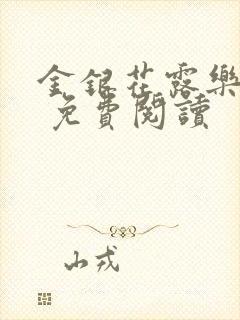 金銀花露樂
免費閱讀
山戎